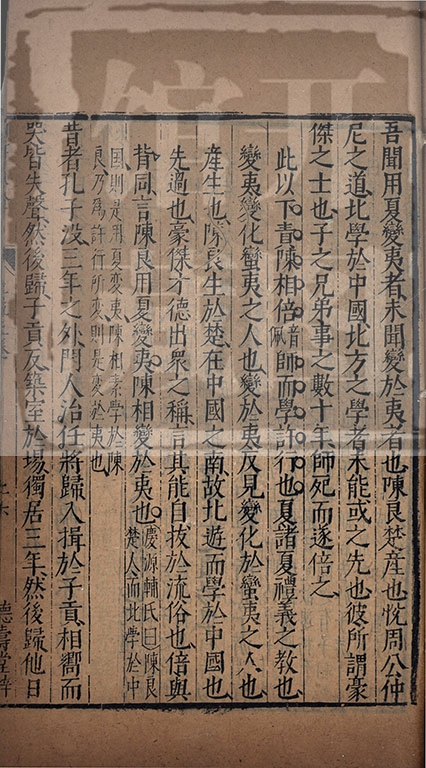 吾聞用夏變夷者未聞變於夷者也陳良楚産也悅周公仲
尼之道北學於中國北方之學者未能或之先也彼所謂豪
傑之士也子之兄弟事之數十年師死而遂倍之
此以下責陳相倍音佩師而學許行也夏諸夏禮義之教也
變夷變化蠻夷之人也變於夷反見變化於蠻夷之人也
産生也陳良生於楚在中國之南故北遊而學於中國也
先過也豪傑才德出衆之稱言其能自拔於流俗也倍與
背同言陳良用夏變夷陳相變於夷也慶源輔氏曰陳良
楚人而北學於中
國則是用夏變夷陳相素學於陳
良乃爲許行所變則是變於夷也
昔者孔子没三年之外門人治任將歸入揖於子貢相嚮而
哭皆失聲然後歸子貢反築室於場獨居三年然後歸他日
德壽堂梓